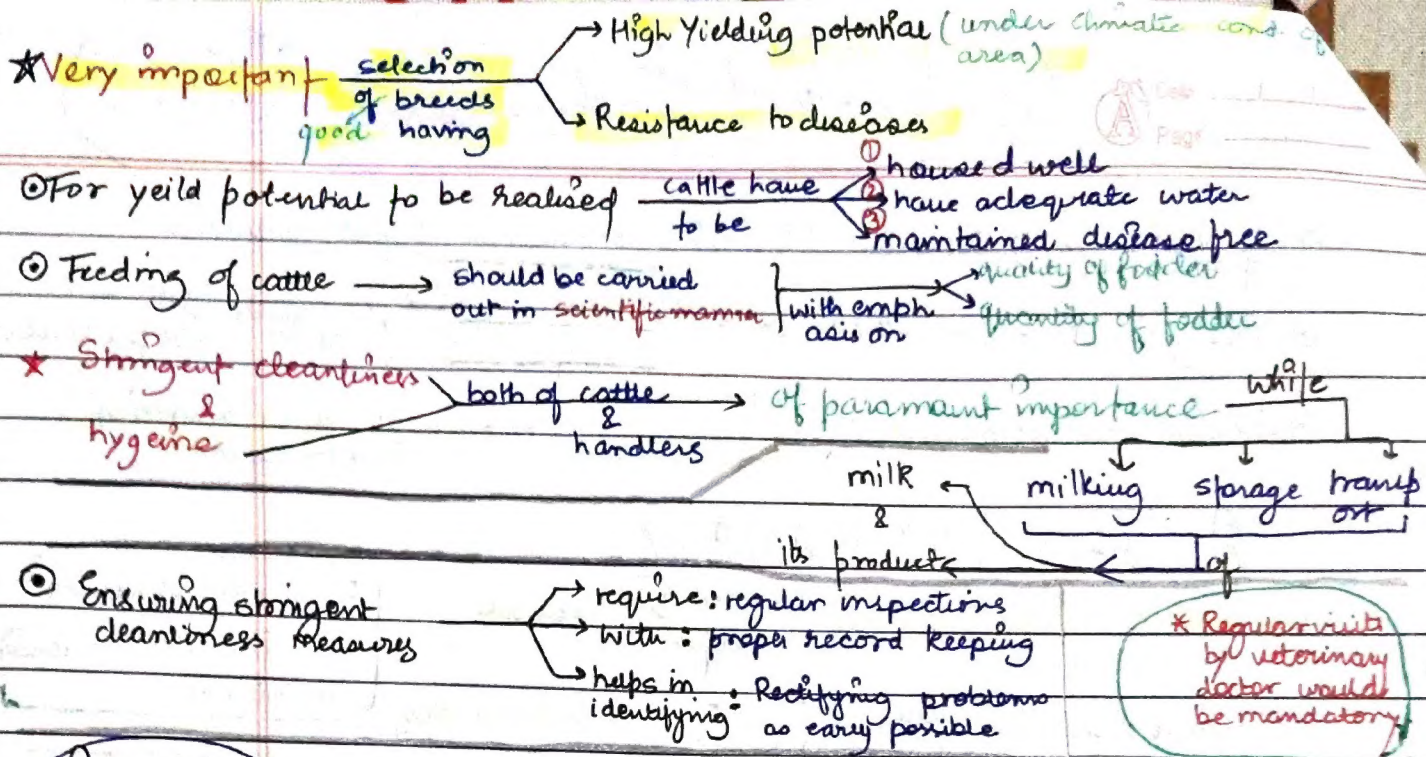 ★Very important
selection
of breeds
good having
→ High Yielding potential (under climatic cond. of
area)
→ Resistance to diseases
Page
⊙For yeild potential to be realised
cattle have
to be
① housed well
② have adequate water
③ maintained disease free
⊙ Feeding of cattle → should be carried
out in scientific manner
with emph
asis on
quality of fodder
quantity of fodder
★ Stringent cleanliness
&
hygeine
both of cattle
&
handlers
→ of paramount importance
while
milking storage transp
ort
of
milk
&
its products
⊙ Ensuring stringent
cleanliness measures
→ require: regular inspections
→ with: proper record keeping
→ helps in
identifying: Rectifying problems
as early possible
* Regular visits
by veterinary
doctor would
be mandatory